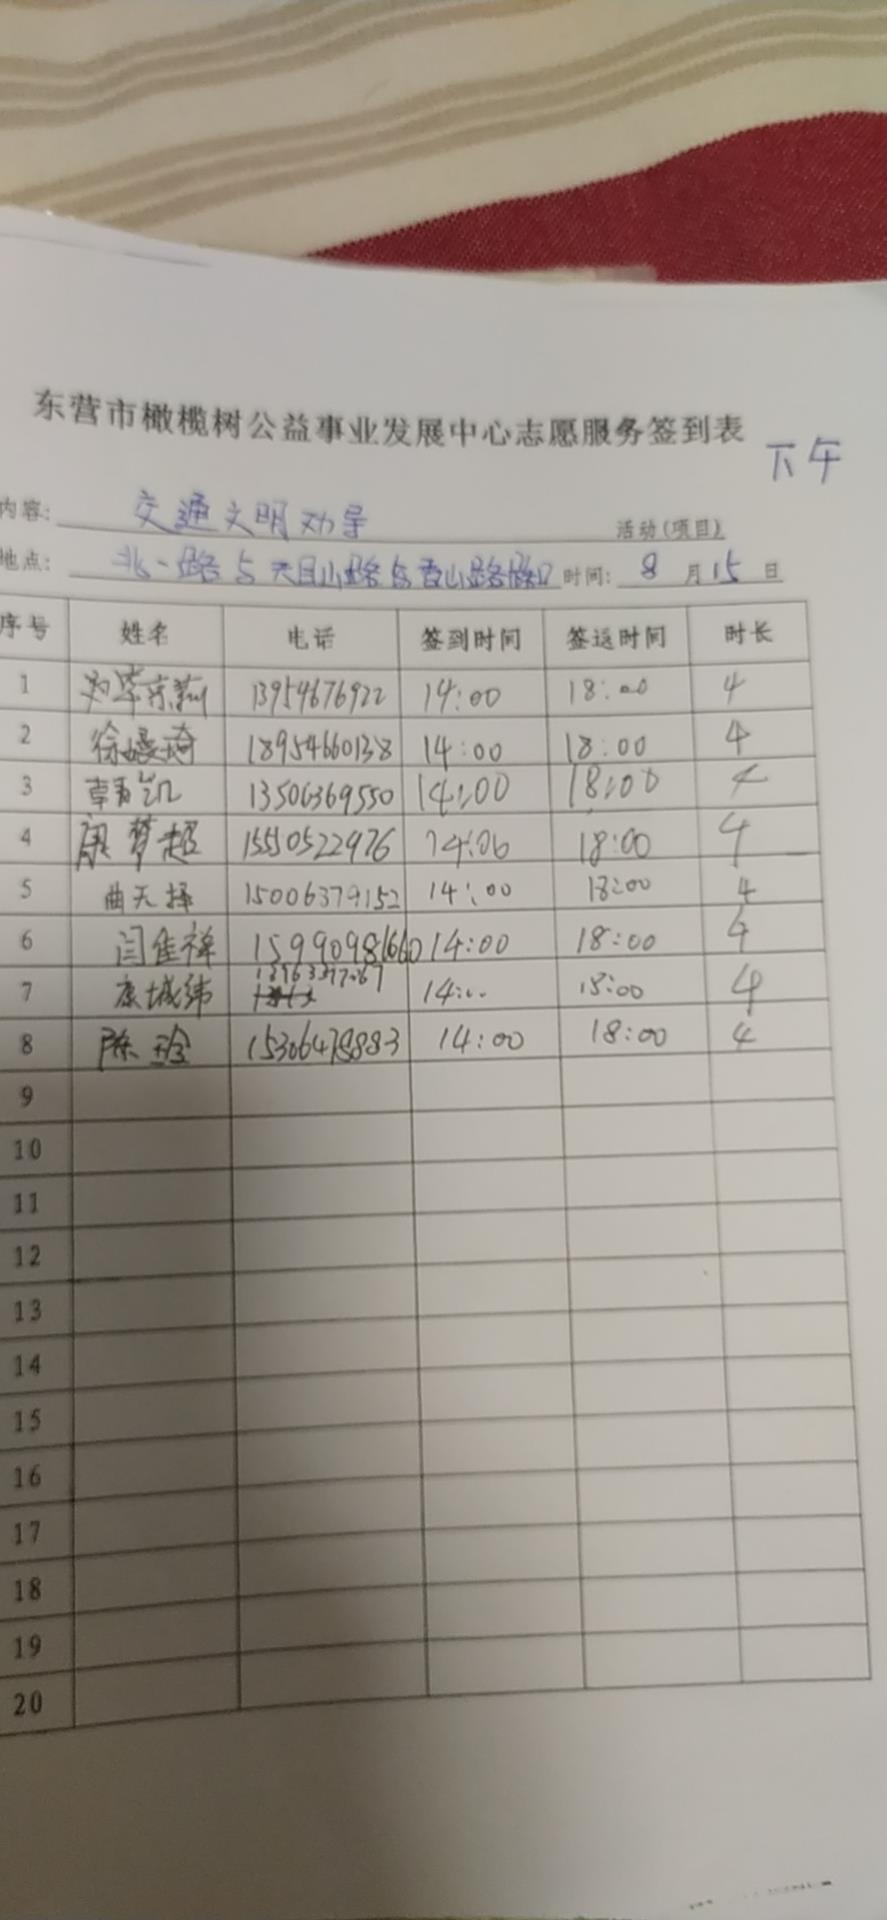 东营市橄榄树公益事业发展中心志愿服务签到表
下午
内容: 交通文明劝导 活动(项目)
地点: 北一路与天目山路与香山路路口 时间: 8 月 15 日
序号 姓名 电话 签到时间 签返时间 时长
1 13954676922 14:00 18:00 4
2 徐嫚琦 18954660138 14:00 18:00 4
3 韩凯 13506369550 14:00 18:00 4
4 康梦超 15550522976 14:00 18:00 4
5 曲天择 15006379152 14:00 18:00 4
6 闫佳祥 15990981660 14:00 18:00 4
7 康城纬 14:00 18:00 4
8 陈玲 15306478883 14:00 18:00 4
9
10
11
12
13
14
15
16
17
18
19
20